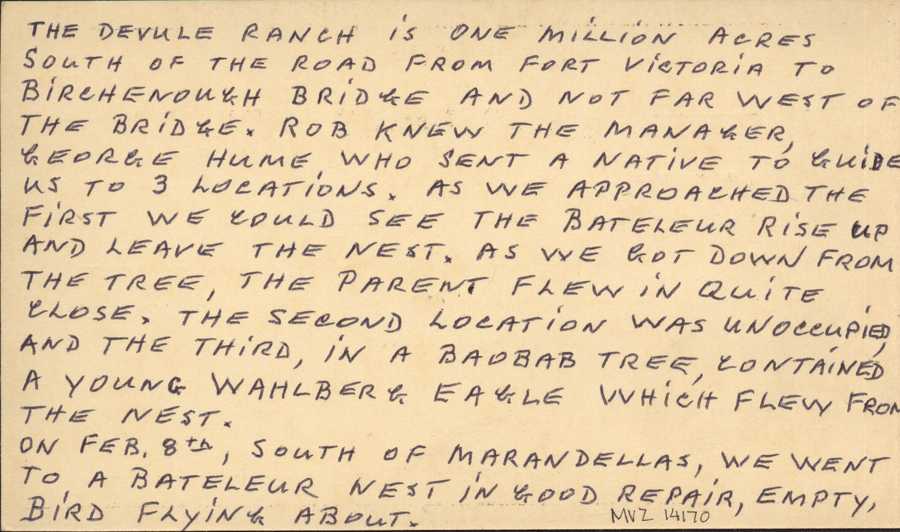 THE DEVULE RANCH iS ONE MiLLiON ACRES
SOUTH OF THE ROAD FROM FORT ViCTORiA TO
BiRCHENOUGH BRiDGE AND NOT FAR WEST OF
THE BRiDGE. ROB KNEW THE MANAGER,
GEORGE HUME WHO SENT A NATiVE TO GUiDE
US TO 3 LOCATiONS. AS WE APPROACHED THE
FiRST WE COULD SEE THE BATELEUR RiSE UP
AND LEAVE THE NEST. AS WE GOT DOWN FROM
THE TREE, THE PARENT FLEW iN QUiTE
CLOSE. THE SECOND LOCATiON WAS UNOCCUPiED,
AND THE THiRD, iN A BAOBAB TREE, CONTAiNED
A YOUNG WAHLBERG EAGLE WHiCH FLEW FROM
THE NEST.
ON FEB. 8th, SOUTH OF MARANDELLAS, WE WENT
TO A BATELEUR NEST iN GOOD REPAiR, EMPTY,
BiRD FLYiNG ABOUT.
MVZ 14170